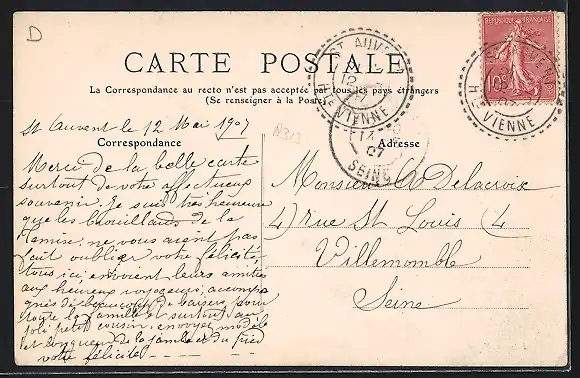 D
CARTE POSTALE
La Correspondance au recto n'est pas acceptée par tous les pays étrangers
(Se renseigner à la Poste)
REPUBLIQUE FRANÇAISE
10
ST AUVENT
12
HTE VIENNE
HTE VIENNE
07
SEINE
A313
St Auvent le 12 Mai 1907
Correspondance
Adresse
Merci de la belle carte
surtout de votre affectueux
souvenir. je suis très heureuse
que les brouillards de la
Tamise, ne vous aient pas
fait oublier votre félicité,
tous ici, envoient leurs amitiés
aux heureux voyageurs, accompa
gnés de beaucoup de baisers, pour
toute la famille et surtout au
joli petit cousin, envoyez modèle
et longueur de la jambe et du pied
votre félicité
Monsieur Delacroix
4) rue St Louis (4
Villemomble
Seine